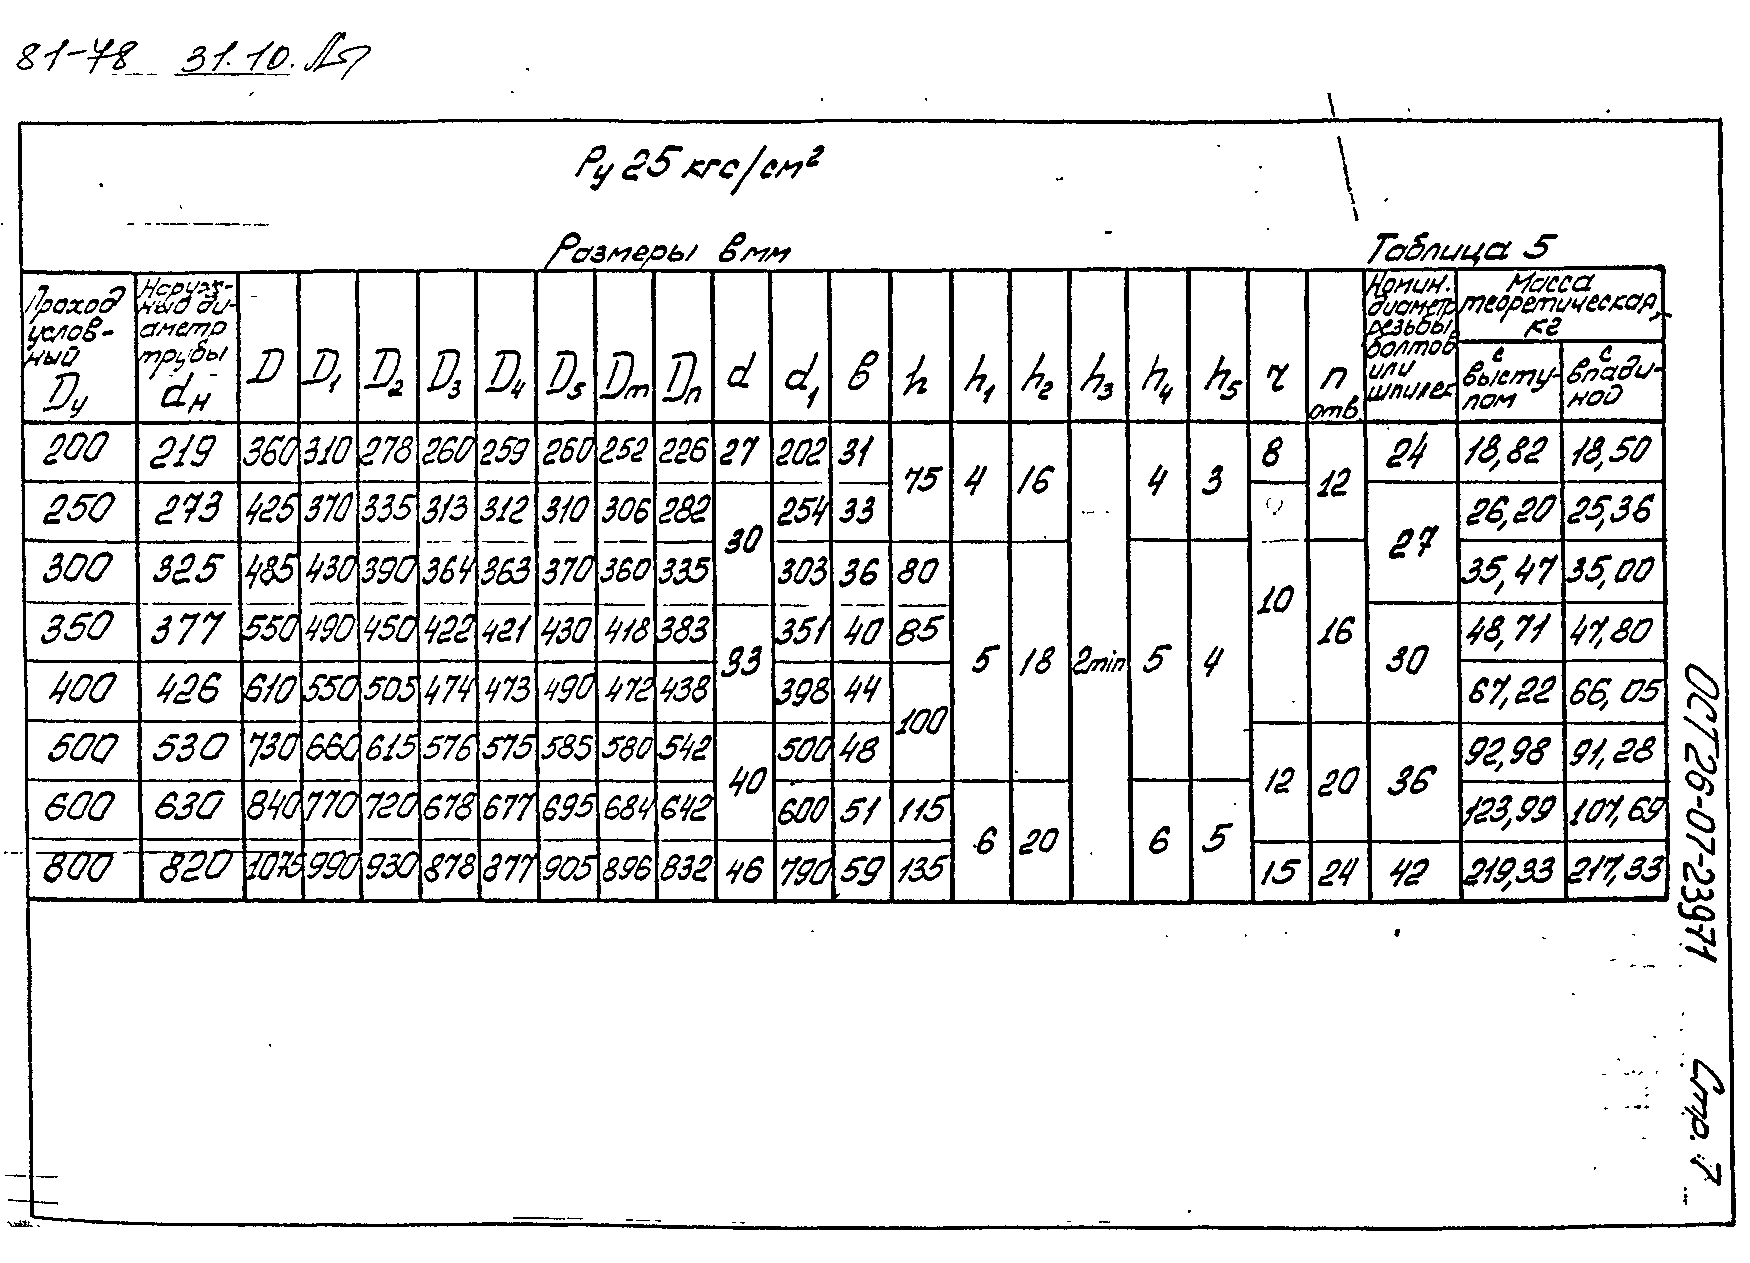 81-78 31.10.
Ру 25 кгс/см²
Размеры в мм Таблица 5
Проход условный Dу | Наружный диаметр трубы dн | D | D1 | D2 | D3 | D4 | D5 | Dm | Dп | d | d1 | в | h | h1 | h2 | h3 | h4 | h5 | r | n отв. | Номин. диаметр резьбы, болтов или шпилек | Масса теоретическая, кг
с выступом | с впадиной
200 219 360 310 278 260 259 260 252 226 27 202 31 75 4 16 2min 4 3 8 12 24 18,82 18,50
250 273 425 370 335 313 312 310 306 282 30 254 33 27 26,20 25,36
300 325 485 430 390 364 363 370 360 335 303 36 80 5 18 5 4 10 16 35,47 35,00
350 377 550 490 450 422 421 430 418 383 33 351 40 85 30 48,71 47,80
400 426 610 550 505 474 473 490 472 438 398 44 100 67,22 66,05
500 530 730 660 615 576 575 585 580 542 40 500 48 12 20 36 92,98 91,28
600 630 840 770 720 678 677 695 684 642 600 51 115 6 20 6 5 123,99 107,69
800 820 1075 990 930 878 877 905 896 832 46 790 59 135 15 24 42 219,33 217,33
ОСТ 26-07-239-71 Стр. 7